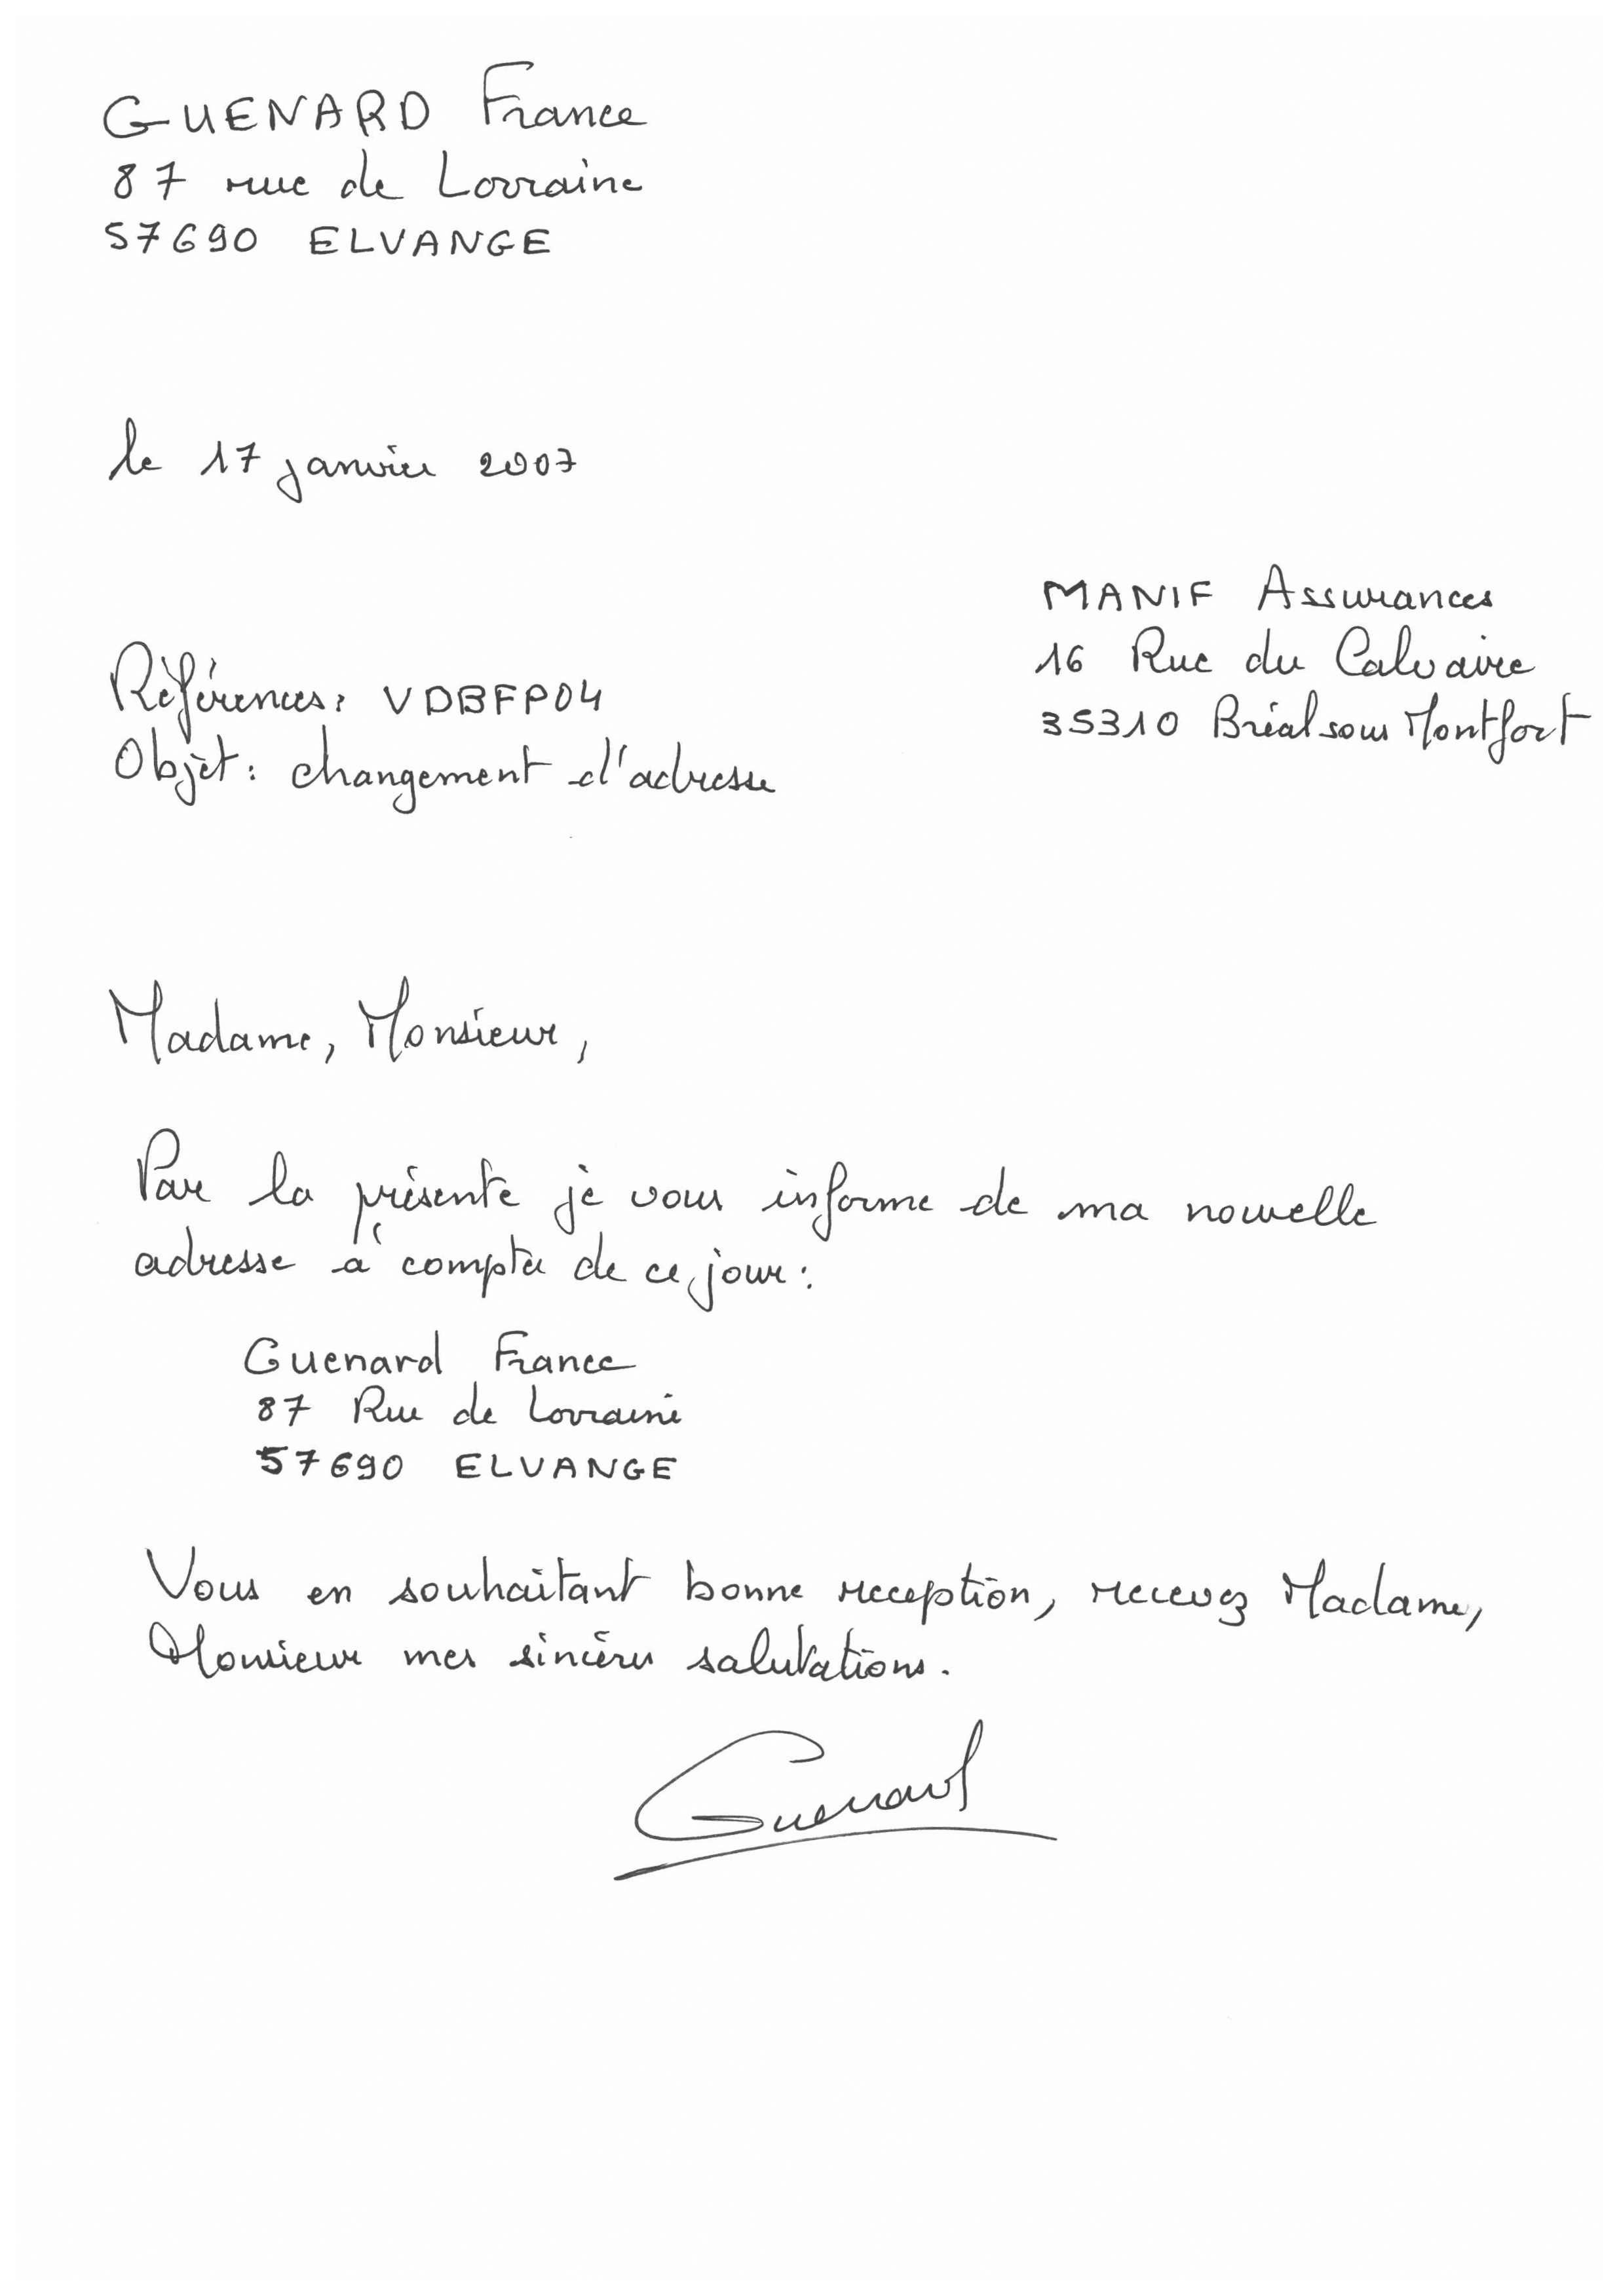 GUENARD France
87 rue de Lorraine
57690 ELVANGE
le 17 janvier 2007
MANIF Assurances
16 Rue du Calvaire
35310 Bréal sous Montfort
Références: VDBFP04
Objet: changement d'adresse
Madame, Monsieur,
Par la présente je vous informe de ma nouvelle
adresse à compter de ce jour:
Guenard France
87 Rue de Lorraine
57690 ELVANGE
Vous en souhaitant bonne reception, recevez Madame,
Monsieur mes sincères salutations.
Guenard